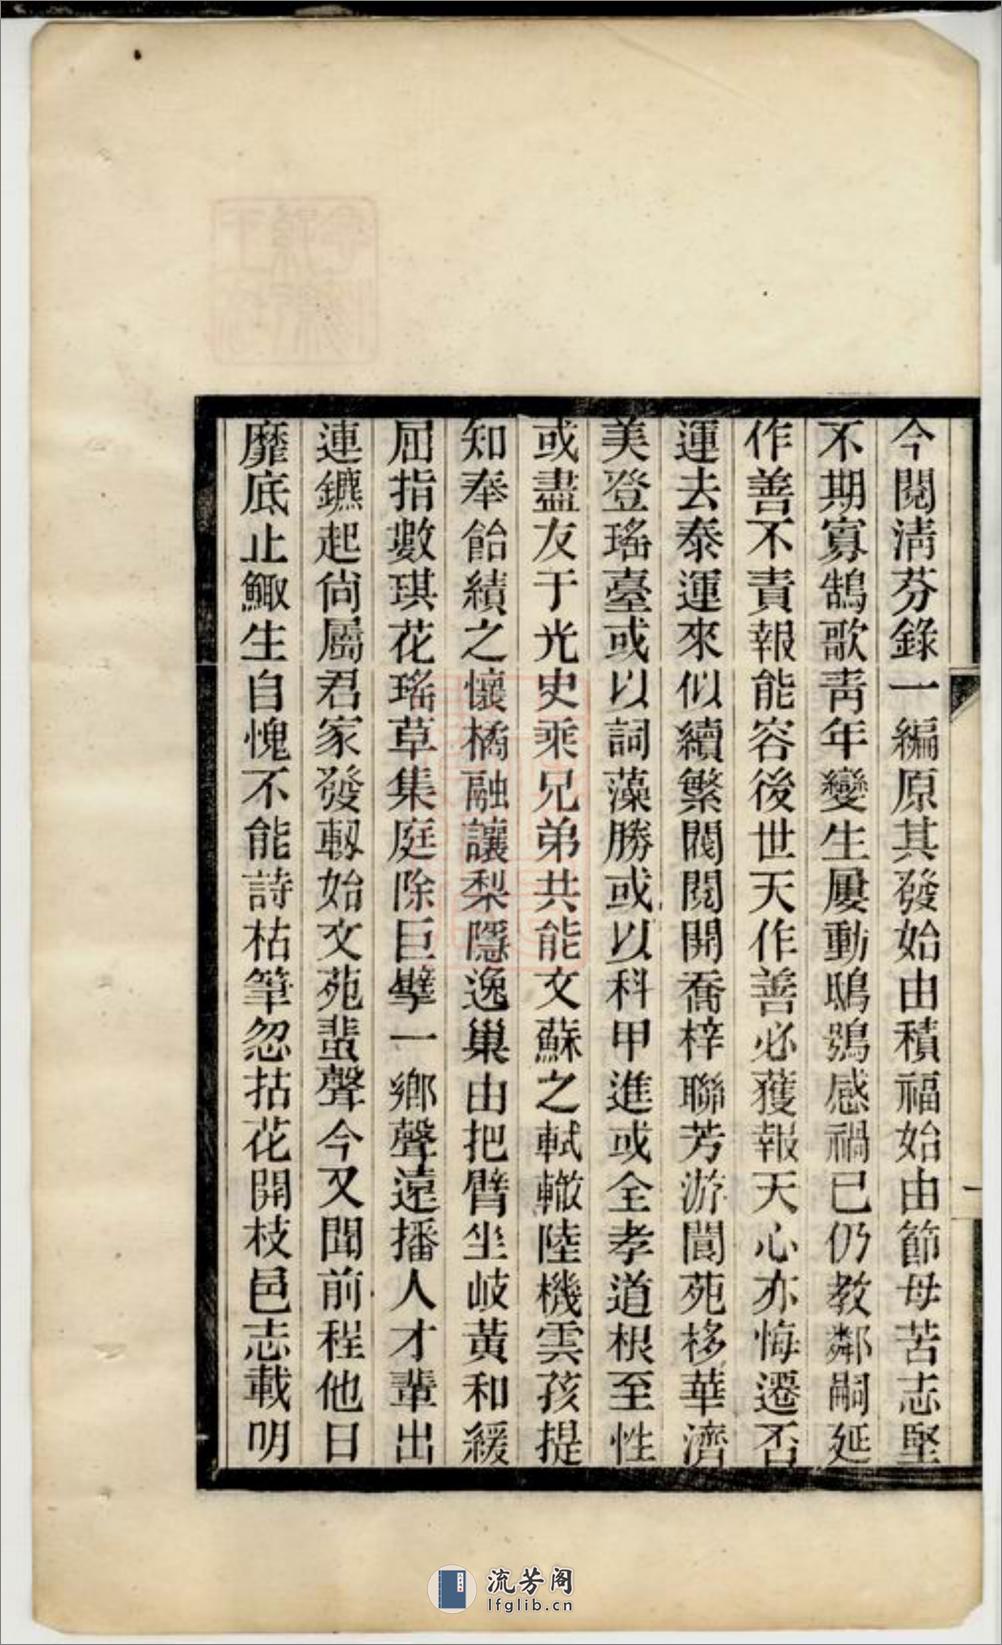 今閱淸芬錄一編原其發始由積福始由節母苦志堅
不期寡鵠歌靑年變生屢動鴟鴞感禍已仍教鄰嗣延
作善不責報能容後世天作善必獲報天心亦悔遷否
運去泰運來似續繁閥閱開喬梓聯芳游閬苑移華濟
美登瑤臺或以詞藻勝或以科甲進或全孝道根至性
或盡友于光史乘兄弟共能文蘇之軾轍陸機雲孩提
知奉飴績之懷橘融讓梨隱逸巢由把臂坐岐黃和緩
屈指數琪花瑤草集庭除巨擘一鄉聲遠播人才輩出
連鑣起尙屬君家發軔始文苑蜚聲今又聞前程他日
靡底止鯫生自愧不能詩枯筆忽拈花開枝邑志載明
流芳阁
lfglib.cn